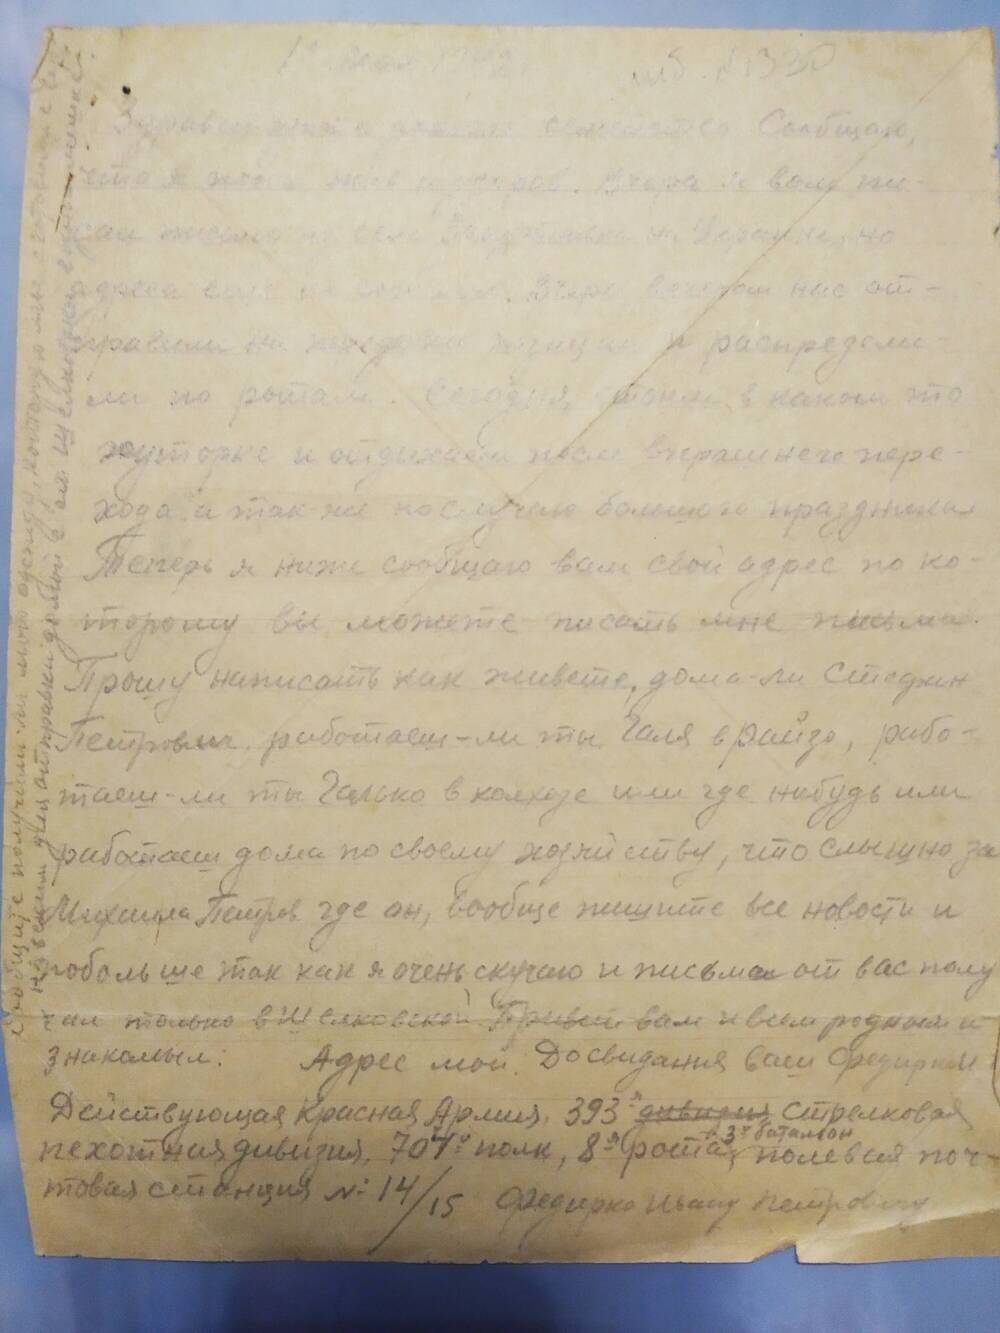 1 мая 1942 г.
инб. №1330
Здравствуйте семейство Сообщаю,
что я пока жив и здоров. Вчера я вам пи-
сал письмо из села на Украине, но
адреса еще не. Вчера вечером нас от-
правили на позиции и распредели-
ли по ротам. Сегодня стоим в каком то
хуторке и отдыхаем после вчерашнего пере-
хода, а так-же по случаю большого праздника.
Теперь я ниже сообщаю вам свой адрес по ко-
торому вы можете писать мне письма.
Прошу написать как живете, дома-ли
Петрович, работаеш-ли ты Галя в райзо, рабо-
таеш-ли ты Галько в колхозе или где нибудь или
работаеш дома по своему хозяйству, что слышно за
Михаила Петров где он, вообще пишите все новости и
побольше так как я очень скучаю и письма от вас полу
чал только в Шелковской. Привет вам и всем родным и
знакомым. Адрес мой. Досвидания ваш Федирко И
Действующая Красная Армия. 393я дивизия стрелковая
пехотная дивизия, 704й полк, 8я рота, 3й баталион полевая поч-
товая станция № 14/15 Федирко Ивану Петровичу
Сообщите получили-ли мою одежду, которую мы сготовили с
для отправки домой в ст Щелковской в одном мешке.